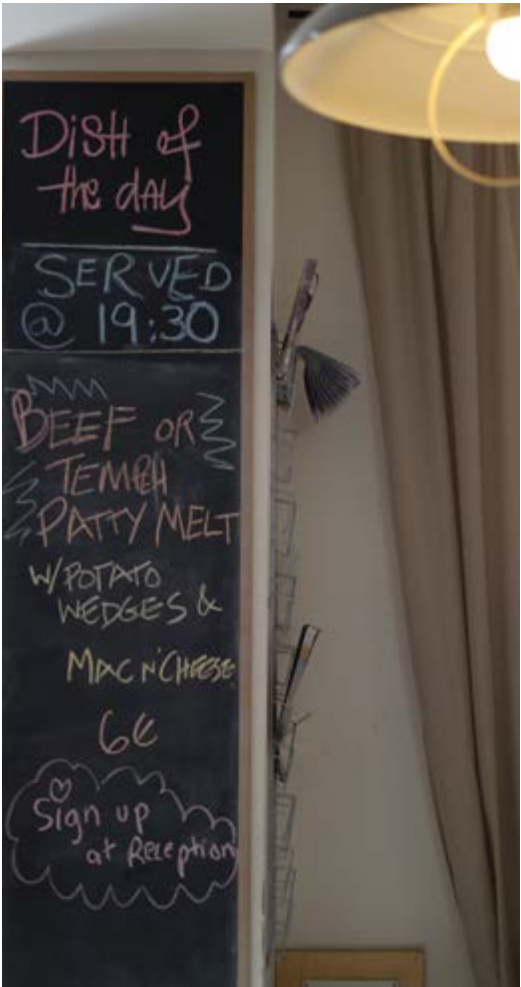 Dish of
the day
SERVED
@ 19:30
BEEF OR
TEMPEH
PATTY MELT
W/POTATO
WEDGES &
MAC N'CHEESE
6€
Sign up
at Reception